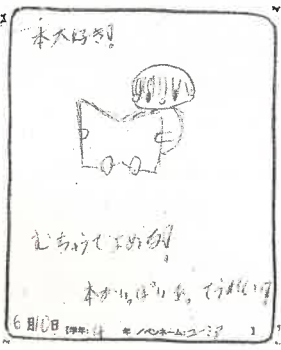 本大好き!
むちゅうでよめる!
本がいっぱいあってうれしい!
6月10日【学年: 4 年 /ペンネーム: ユーミア 】